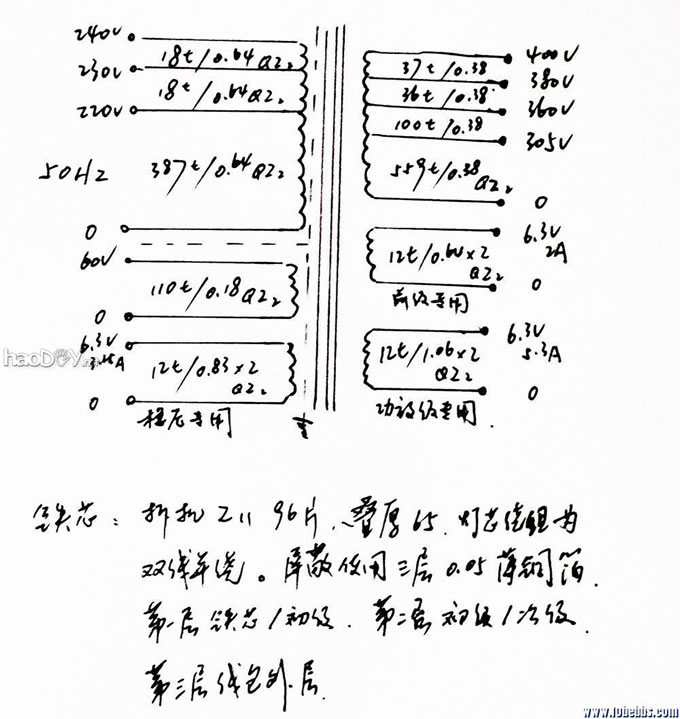 240V
18t/0.64 QZ2
230V
18t/0.64 QZ2
220V
50HZ
387t/0.64 QZ2
0
60V
110t/0.18 QZ2
0
6.3V
12t/0.83×2 QZ2
0
专用
400V
37t/0.38
380V
36t/0.38
360V
100t/0.38
305V
559t/0.38 QZ2
0
6.3V
2A
12t/0.64×2
QZ2
0
前级专用
6.3V
5.3A
12t/1.06×2
QZ2
0
功放级专用
铁芯: 拆机 Z11 96片、叠厚65. 灯芯绕组为
双线并绕。屏蔽使用三层0.05薄铜箔.
第一层铁芯/初级. 第二层初级/次级.
第三层线包外层.
haoDIY
www.iohebbs.com